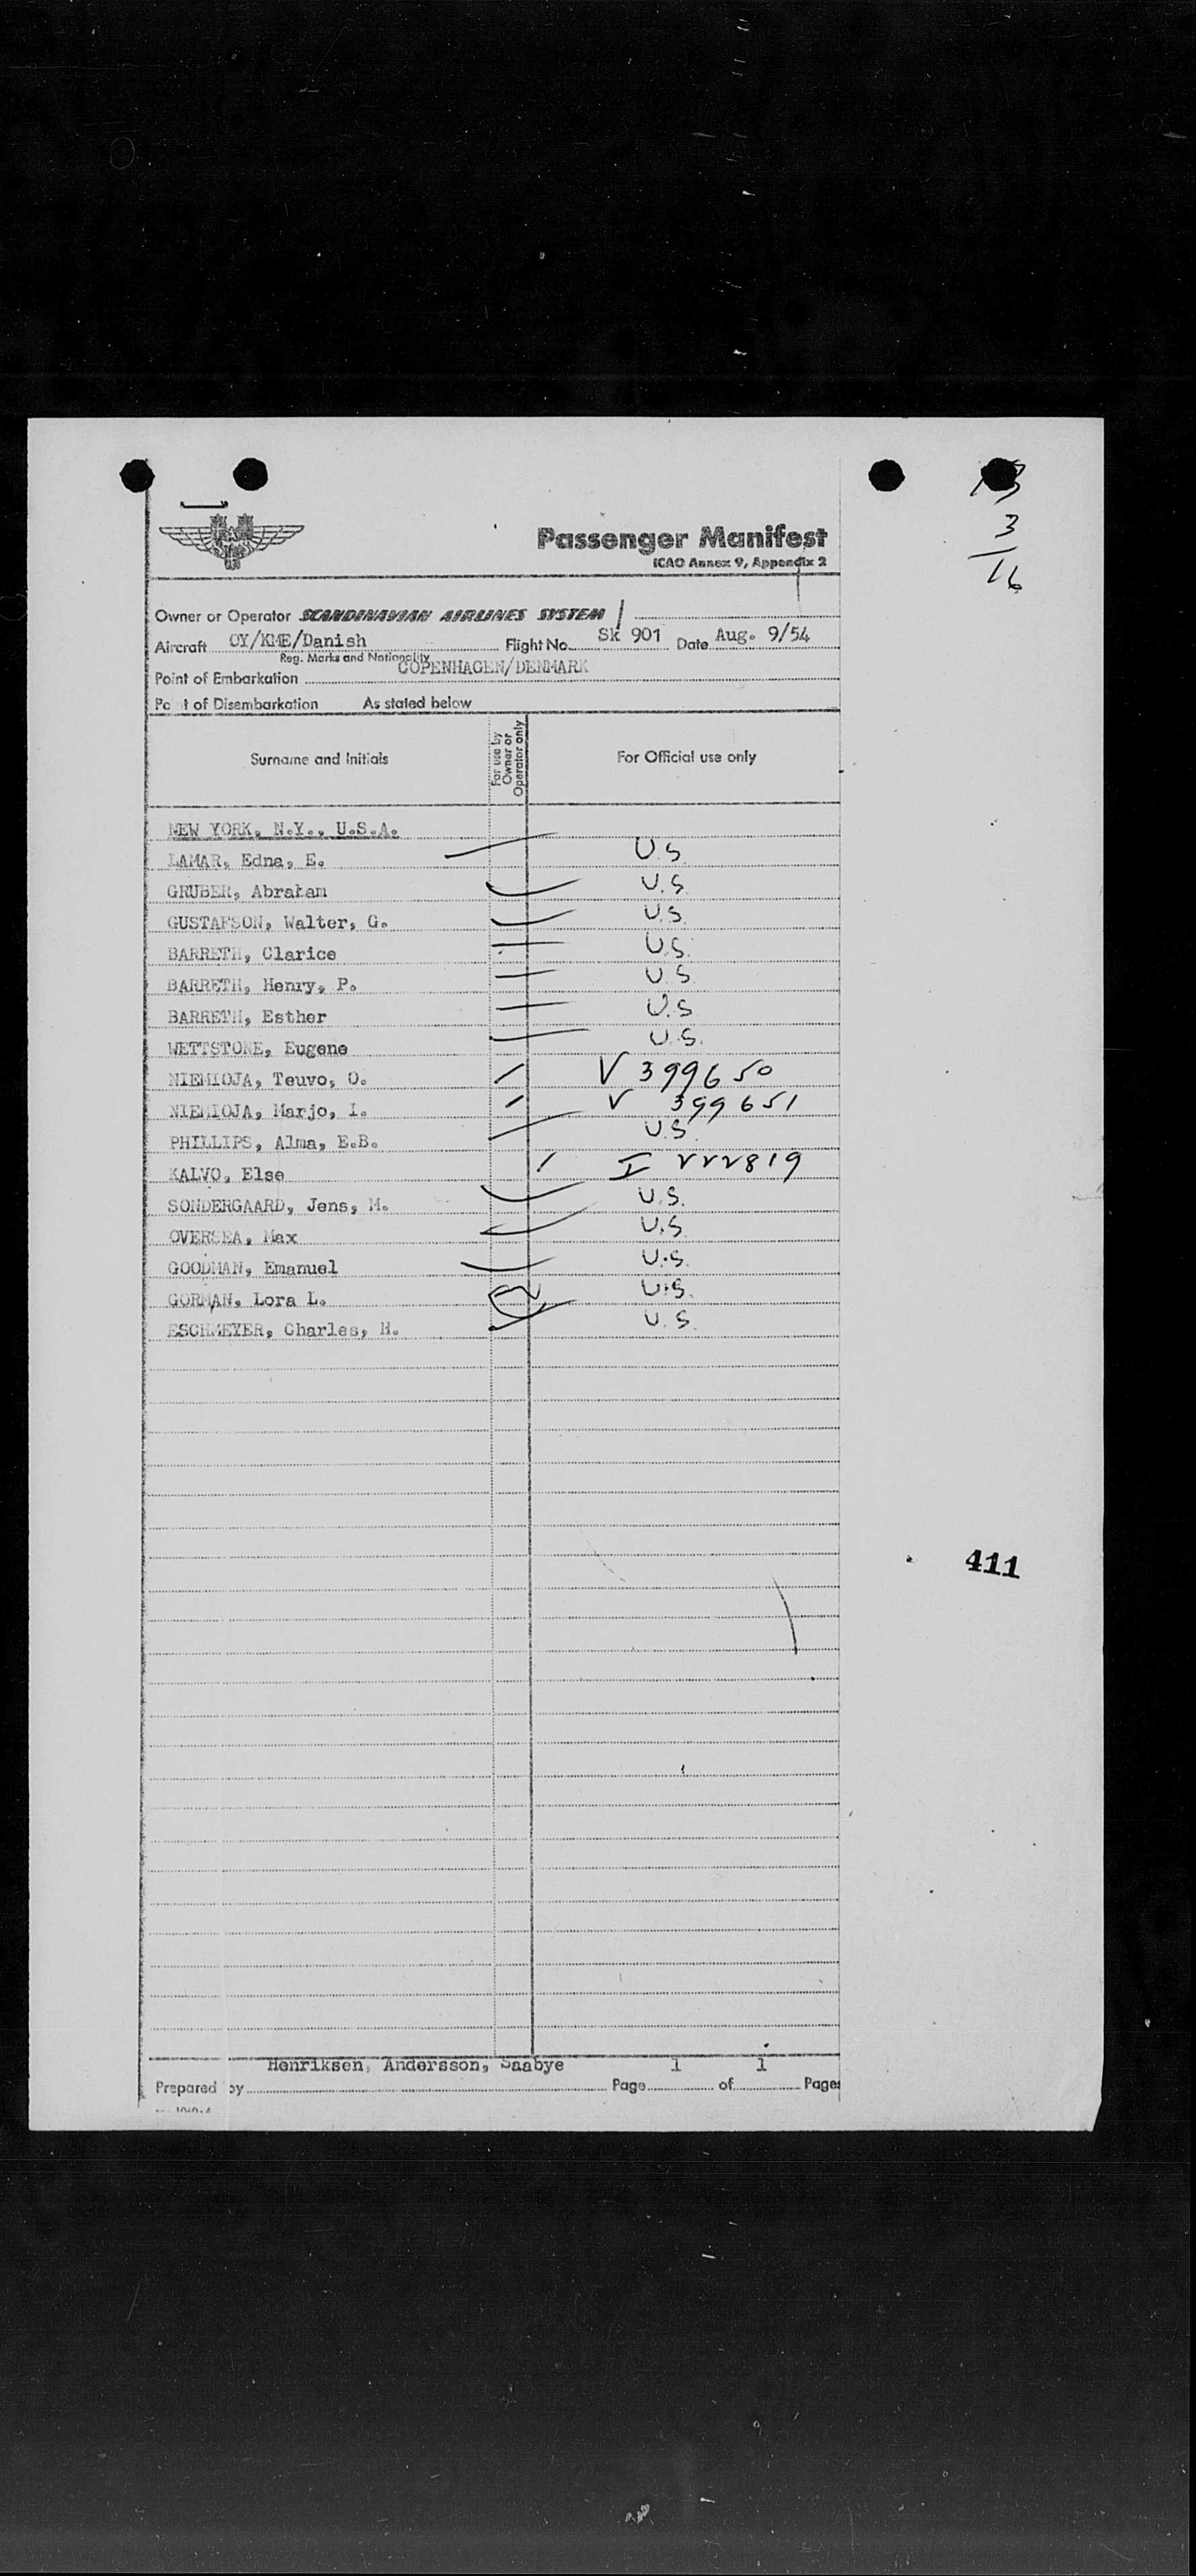 13
3
16
Passenger Manifest
ICAO Annex 9, Appendix 2
Owner or Operator SCANDINAVIAN AIRLINES SYSTEM
Aircraft OY/KME/Danish Flight No. SK 901 Date Aug. 9/54
Reg. Marks and Nationality
Point of Embarkation COPENHAGEN/DENMARK
Po t of Disembarkation As stated below
Surname and Initials For use by Owner or Operator only For Official use only
NEW YORK, N.Y., U.S.A.
LAMAR, Edna, E. U.S.
GRUBER, Abraham U.S.
GUSTAFSON, Walter, G. U.S.
BARRETH, Clarice U.S.
BARRETH, Henry, P. U.S.
BARRETH, Esther U.S
WETTSTONE, Eugene U.S.
NIEMIOJA, Teuvo, O. V 399650
NIEMIOJA, Marjo, I. V 399651
PHILLIPS, Alma, E.B. U.S.
KALVO, Else I 222819
SONDERGAARD, Jens, M. U.S.
OVERSEA, Max U.S.
GOODMAN, Emanuel U.S.
GORMAN, Lora L. U.S.
ESCHMEYER, Charles, H. U.S.
411
Henriksen, Andersson, Saabye 1 1
Prepared by Page of Pages